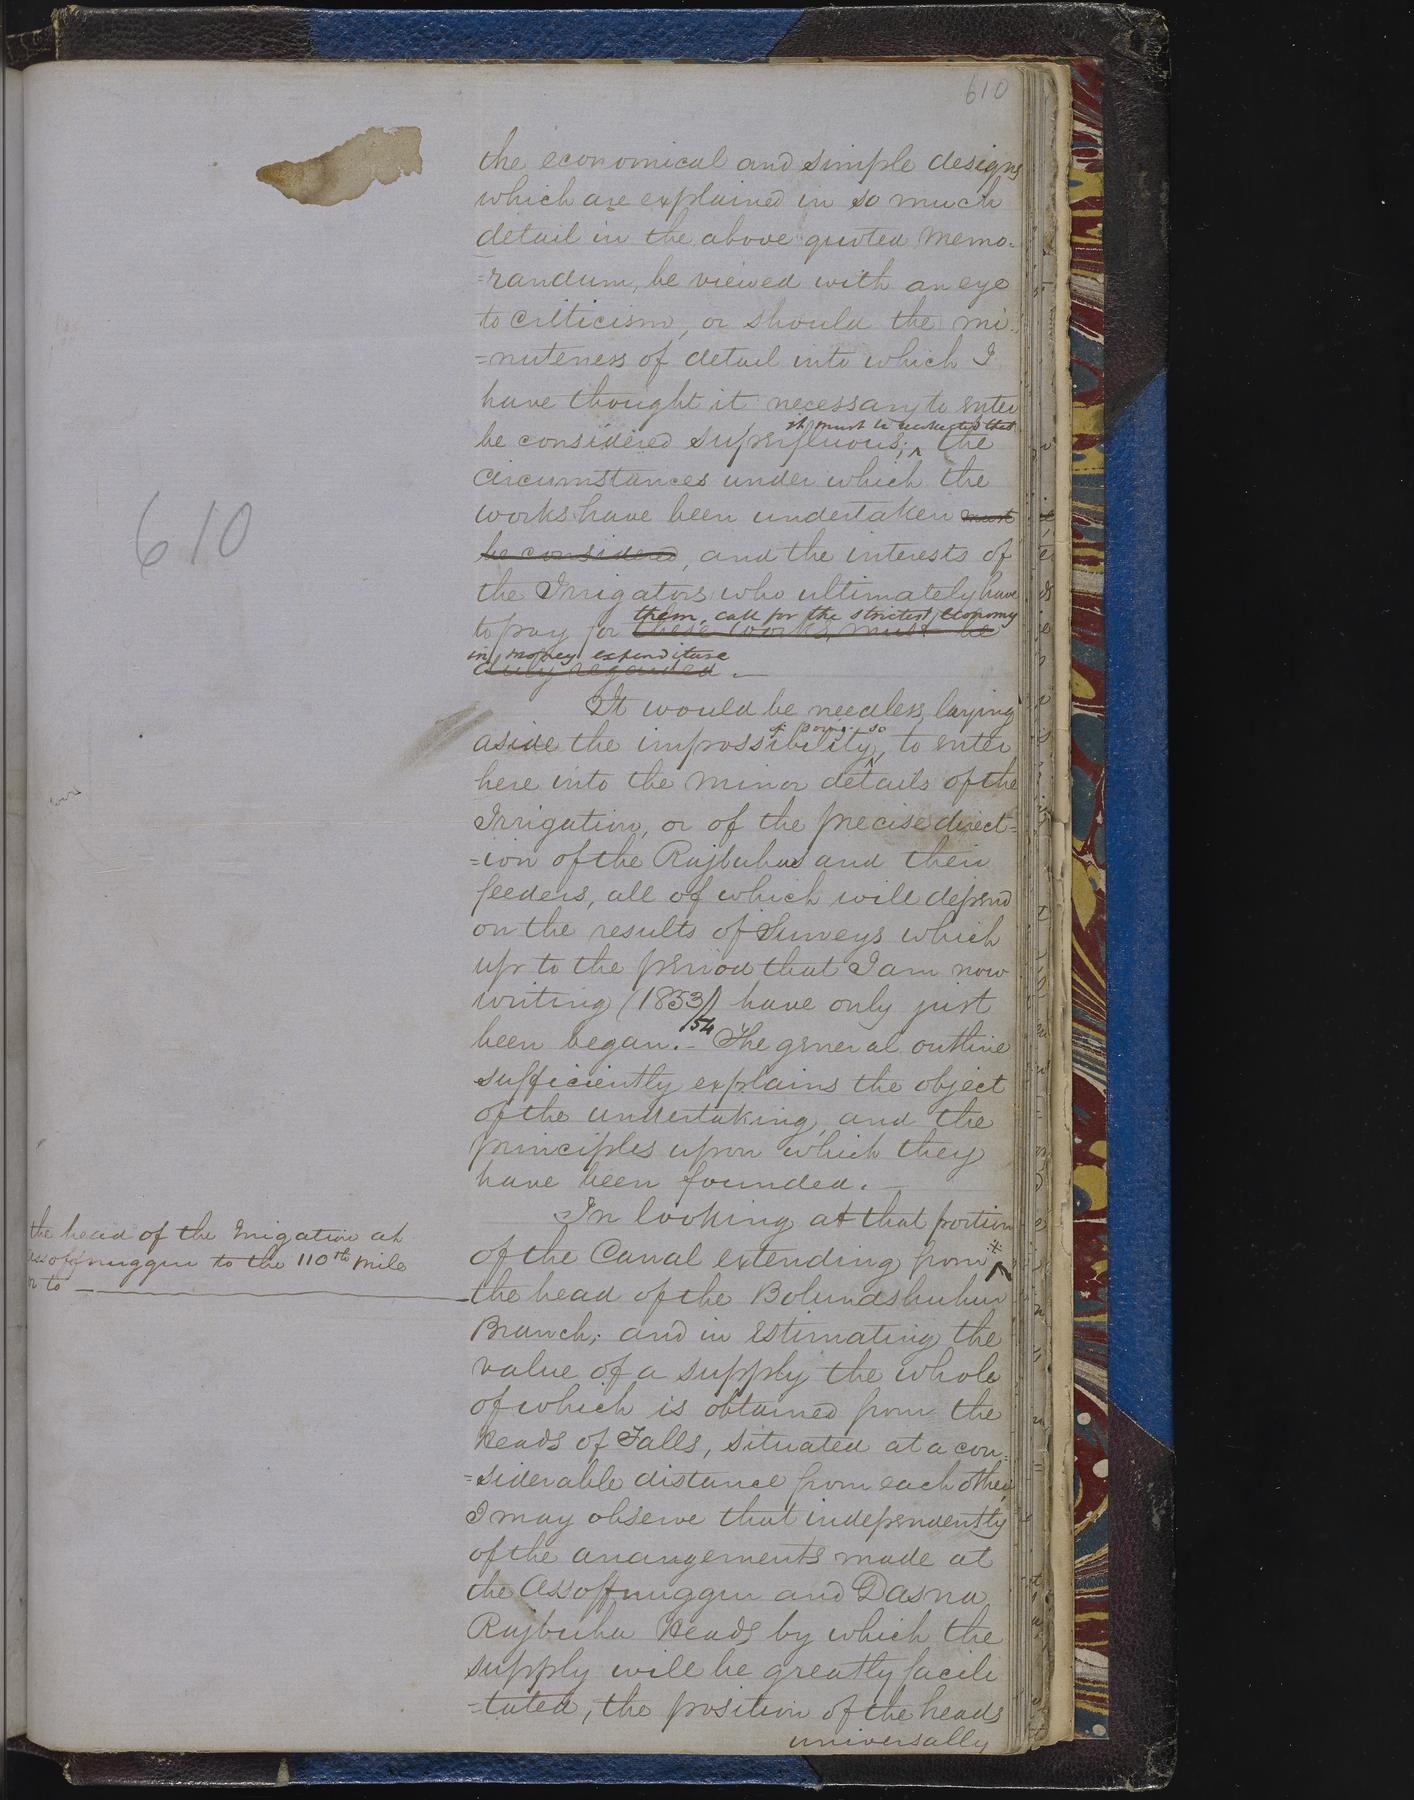 610
the economical and simple designs
which are explained in so much
detail in the above quoted Memo-
=randum, be viewed with an eye
to criticism, or should the mi-
=nuteness of detail into which I
have thought it necessary to enter
it must be recollected that
be considered superfluous; ^ the
circumstances under which the
works have been undertaken must
be considered, and the interests of
the Irrigators who ultimately have
them, call for the strictest economy
to pay for these works, must be
in money expenditure
duly regarded.—
It would be needless, laying
of doing so
aside the impossibility ^, to enter
here into the minor details of the
Irrigation, or of the precise direct=
=ion of the Rajbuhas and their
feeders, all of which will depend
on the results of Surveys which
up to the period that I am now
writing (1853/54) have only just
been began.— The general outline
sufficiently explains the object
of the undertaking, and the
principles upon which they
have been founded.—
In looking at that portion
of the Canal extending from ^
the head of the Bolundshuhur
Branch; and in estimating the
value of a supply the whole
of which is obtained from the
heads of Falls, situated at a con=
=siderable distance from each other,
I may observe that independently
of the arrangements made at
the Assoffnuggur and Dasna
Rajbuha heads by which the
supply will be greatly facili
=tated, the position of the heads
universally
610
the head of the Irrigation at
Assoffnuggur to the 110th mile
or to